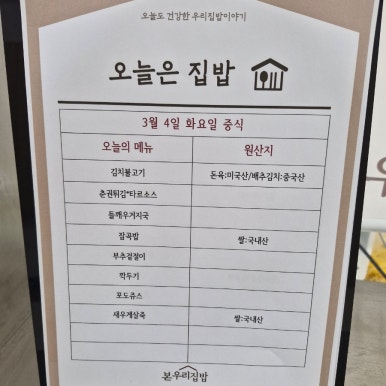 오늘도 건강한 우리집밥이야기
오늘은 집밥
3월 4일 화요일 중식
오늘의 메뉴 원산지
김치불고기 돈육:미국산/배추김치:중국산
춘권튀김*타르소스
들깨우거지국
잡곡밥 쌀:국내산
부추겉절이
깍두기
포도쥬스
새우게살죽 쌀:국내산
본우리집밥